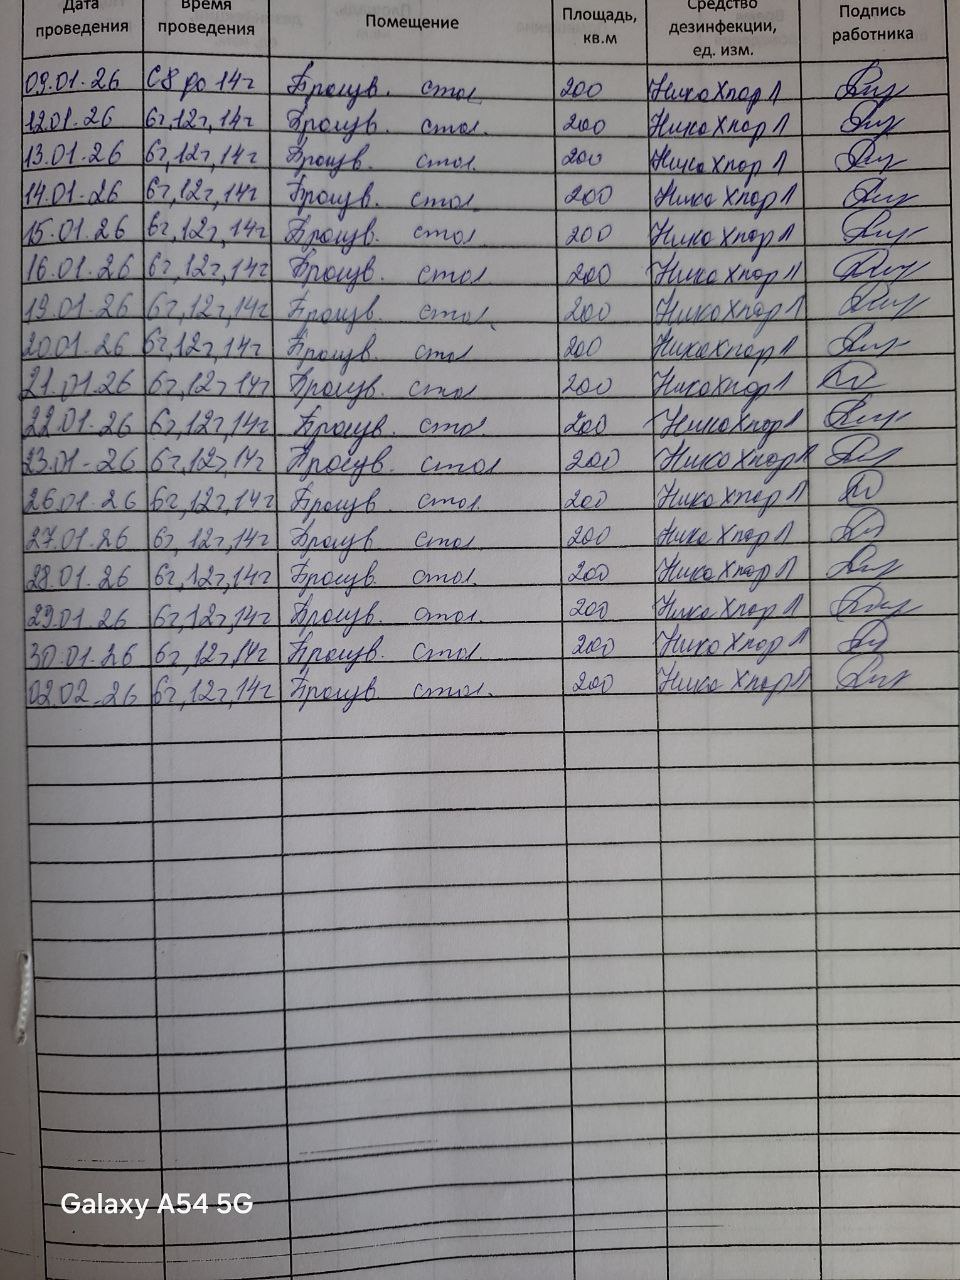 Дата проведения Время проведения Помещение Площадь, кв.м Средство дезинфекции, ед. изм. Подпись работника
09.01.26 С 8 до 14ч стол. 200 НикаХлор Л
12.01.26 6ч,12ч,14ч стол. 200 НикаХлор Л
13.01.26 6ч,12ч,14ч стол. 200 НикаХлор Л
14.01.26 6ч,12ч,14ч стол. 200 Ника Хлор Л
15.01.26 6ч,12ч,14ч стол. 200 Ника Хлор Л
16.01.26 6ч,12ч,14ч стол 200 Ника Хлор Л
19.01.26 6ч,12ч,14ч стол. 200 НикаХлор Л
20.01.26 6ч,12ч,14ч стол 200 НикаХлор Л
21.01.26 6ч,12ч 14ч стол 200 НикаХлор Л
22.01.26 6ч,12ч,14ч стол. 200 НикаХлор Л
23.01-26 6ч,12ч,14ч стол 200 Ника Хлор Л
26.01.26 6ч,12ч,14ч стол. 200 Ника Хлор Л
27.01.26 6ч, 12ч,14ч стол. 200 Ника Хлор Л
28.01.26 6ч,12ч,14ч стол. 200 Ника Хлор Л
29.01.26 6ч,12ч,14ч стол. 200 Ника Хлор Л
30.01.26 6ч,12ч,14ч стол. 200 Ника Хлор Л
02.02.26 6ч,12ч,14ч стол. 200 Ника Хлор Л
Galaxy A54 5G